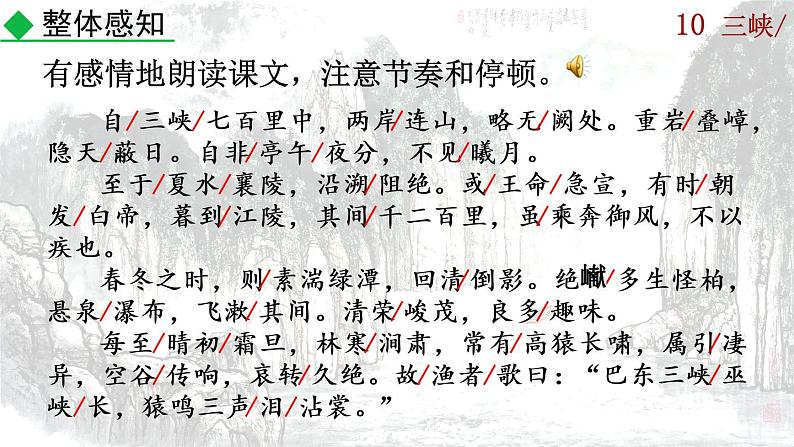 整体感知
10 三峡/
有感情地朗读课文，注意节奏和停顿。
自/三峡/七百里中，两岸/连山，略无/阙处。重岩/叠嶂，
隐天/蔽日。自非/亭午/夜分，不见/曦月。
至于/夏水/襄陵，沿溯/阻绝。或/王命/急宣，有时/朝
发/白帝，暮到/江陵，其间/千二百里，虽/乘奔御风，不以
疾也。
春冬之时，则/素湍绿潭，回清/倒影。绝𪩘/多生怪柏，
悬泉/瀑布，飞漱/其间。清荣/峻茂，良多/趣味。
每至/晴初/霜旦，林寒/涧肃，常有/高猿长啸，属引/凄
异，空谷/传响，哀转/久绝。故/渔者/歌曰：“巴东三峡/巫
峡/长，猿鸣三声/泪/沾裳。”